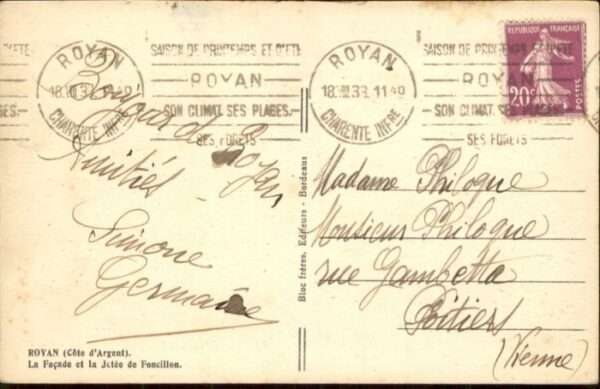 ROYAN
18.VII.33 11 40
CHARENTE INFRE
SAISON DE PRINTEMPS ET D'ETE
ROYAN
SON CLIMAT. SES PLAGES.
SES FORETS
ROYAN
18.VII.33. 11 40
CHARENTE INFRE
SAISON DE PRINTEMPS ET D'ETE
ROYAN
SON CLIMAT. SES PLAGES.
SES FORETS
REPUBLIQUE FRANÇAISE
20c
POSTES
Bonjour de Royan
Amitiés
Simone
Germaine
Bloc frères, Editeurs - Bordeaux
Madame Philoque
Monsieur Philoque
rue Gambetta
Poitiers
(Vienne)
ROYAN (Côte d'Argent).
La Façade et la Jetée de Foncillon.